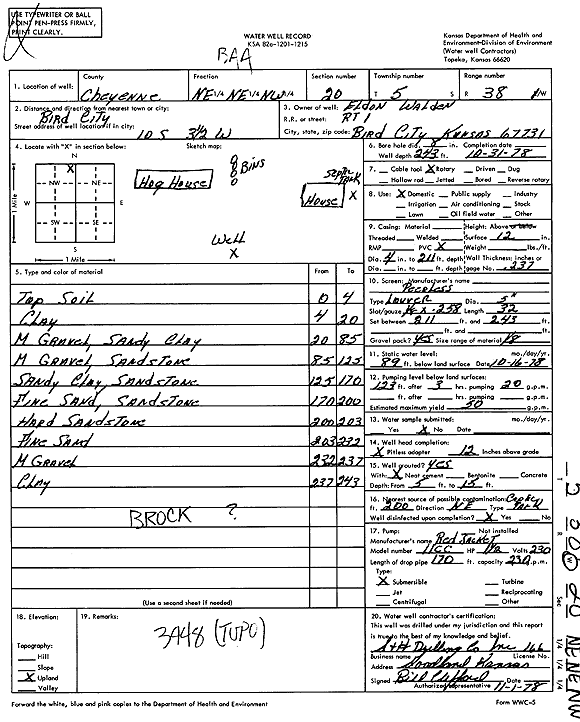 USE TYPEWRITER OR BALL
POINT PEN-PRESS FIRMLY,
PRINT CLEARLY.
WATER WELL RECORD
KSA 82a-1201-1215
BAA
Kansas Department of Health and
Environment-Division of Environment
(Water well Contractors)
Topeka, Kansas 66620
1. Location of well: County Cheyenne Fraction NE 1/4 NE 1/4 NW 1/4 Section number 20 Township number T 5 S Range number R 38 E/W
2. Distance and direction from nearest town or city: Bird City
Street address of well location if in city: 10 S 3 1/2 W
3. Owner of well: Eldon Walden
R.R. or street: RT 1
City, state, zip code: Bird City Kansas 67731
4. Locate with "X" in section below: Sketch map:
N
X
NW NE
W E
SW SE
S
1 Mile
1 Mile
Hog House
Bins
Septic Tank
House X
Well
X
5. Type and color of material From To
Top Soil 0 4
Clay 4 20
M Gravel, Sandy Clay 20 85
M Gravel, Sandstone 85 125
Sandy Clay, Sandstone 125 170
Fine Sand, Sandstone 170 200
Hard Sandstone 200 203
Fine Sand 203 232
M Gravel 232 237
Clay 237 243
BROCK ?
(Use a second sheet if needed)
6. Bore hole dia. 8 in. Completion date
Well depth 243 ft. 10-31-78
7. Cable tool X Rotary Driven Dug
Hollow rod Jetted Bored Reverse rotary
8. Use: X Domestic Public supply Industry
Irrigation Air conditioning Stock
Lawn Oil field water Other
9. Casing: Material Height: Above or below
Threaded Welded Surface 12 in.
RMP PVC X Weight lbs./ft.
Dia. 4 in. to 211 ft. depth Wall Thickness: inches or
Dia. in. to ft. depth gage No. .237
10. Screen: Manufacturer's name
Peerless
Type Louver Dia. 5"
Slot/gauze Length 32
Set between 211 ft. and 243 ft.
ft. and ft.
Gravel pack? yes Size range of material 1/8
11. Static water level: mo./day/yr.
89 ft. below land surface Date 10-16-78
12. Pumping level below land surfaces:
123 ft. after 3 hrs. pumping 20 g.p.m.
ft. after hrs. pumping g.p.m.
Estimated maximum yield 50 g.p.m.
13. Water sample submitted: mo./day/yr.
Yes X No Date
14. Well head completion:
X Pitless adapter 12 Inches above grade
15. Well grouted? yes
With: X Neat cement Bentonite Concrete
Depth: From 5 ft. to 15 ft.
16. Nearest source of possible contamination:
ft. 200 Direction NE Type Septic Tank
Well disinfected upon completion? X Yes No
17. Pump: Not installed
Manufacturer's name Red Jacket
Model number 11CC HP 1 1/2 Volts 230
Length of drop pipe 170 ft. capacity g.p.m.
Type:
X Submersible Turbine
Jet Reciprocating
Centrifugal Other
18. Elevation:
Topography:
Hill
Slope
X Upland
Valley
19. Remarks:
3A48 (TUPO)
20. Water well contractor's certification:
This well was drilled under my jurisdiction and this report
is true to the best of my knowledge and belief.
S+H Drilling Co Inc 166
Business name License No.
Address Goodland Kansas
Signed Bill Clifford 11-1-78
Authorized representative
T R Sec 1/4 1/4 1/4
5 38W 20 NENENW
Forward the white, blue and pink copies to the Department of Health and Environment
Form WWC-5